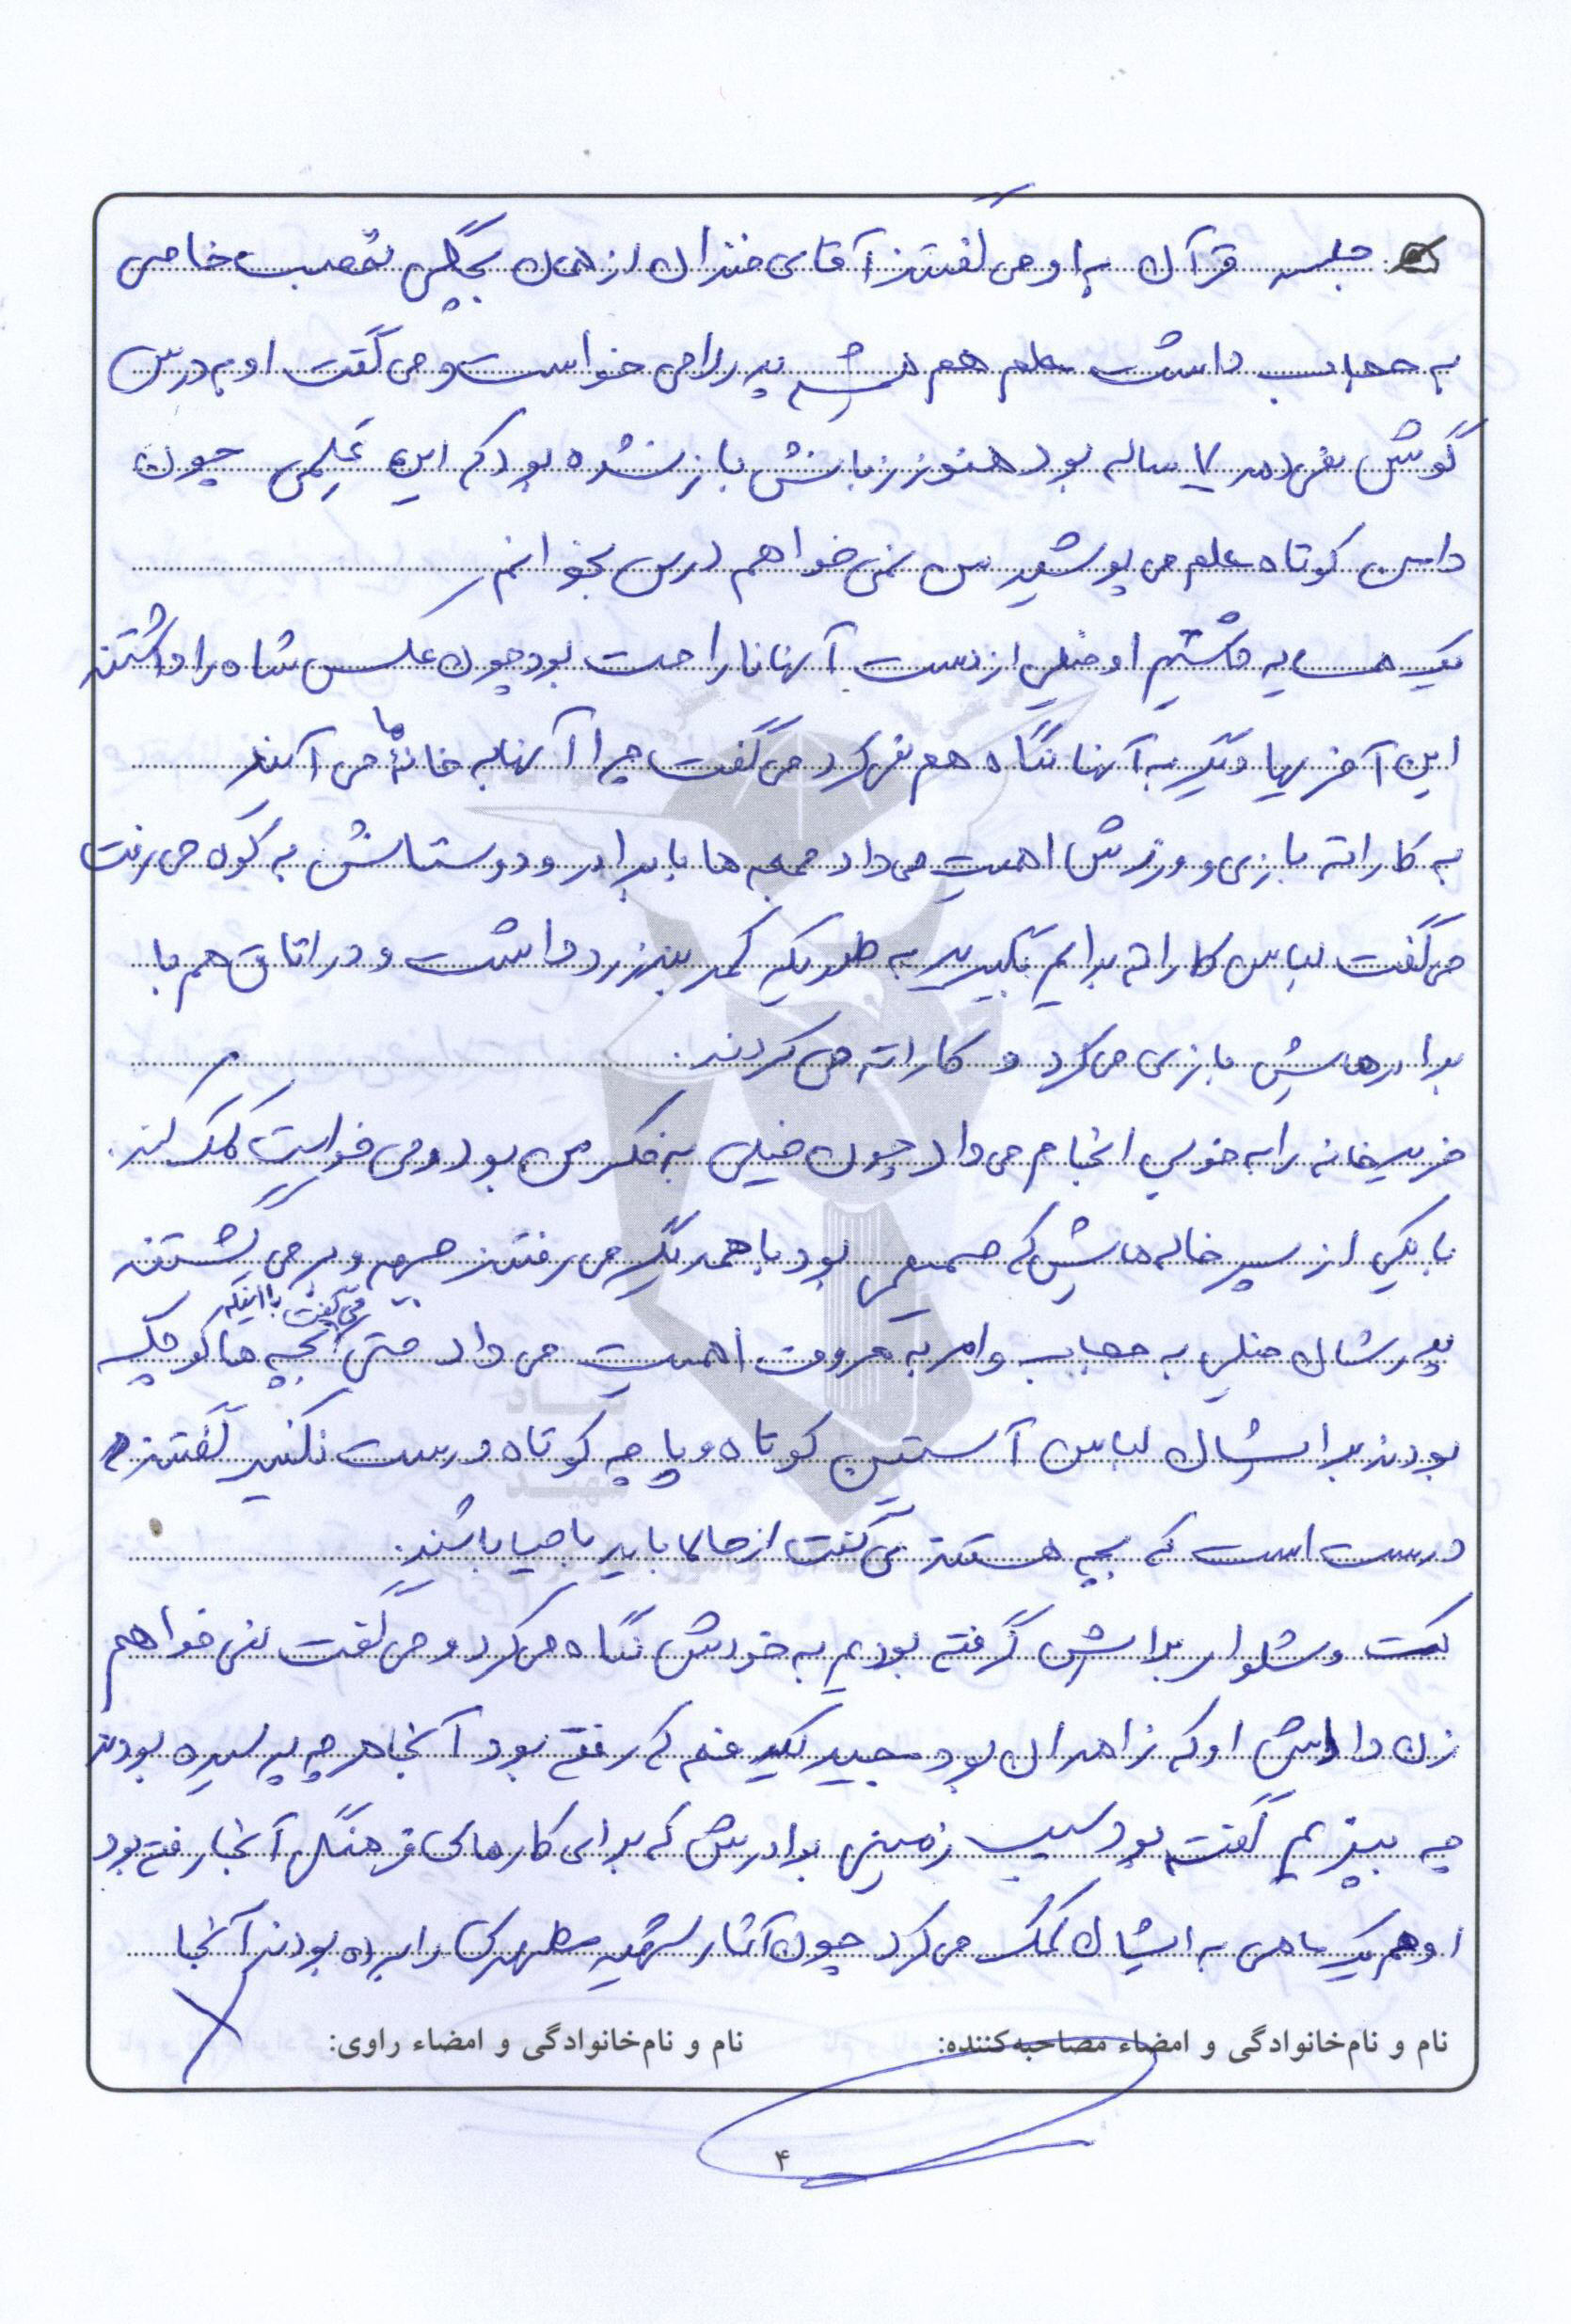 جلسه قرآن به او می گفتند آقای خندان از همان بچگی تعصب خاصی
به حجاب داشت معلم هم همیشه پدر را می خواست و می گفت او به درس
گوش نمی دهد ۷ ساله بود هنوز زبانش باز نشده بود که این عَلِمی چون
دامن کوتاه معلم می پوشید من نمی خواهم درس بخوانم
یک همسایه داشتیم او خیلی از دست آنها ناراحت بود چون عکس شاه را داشتند
این آخریها دیگر به آنها نگاه هم نمی کرد می گفت چرا آنها به خانۀ ما می آیند
به کاراته بازی و ورزش اهمیت می داد جمعه ها با برادر و دوستانش به کوه می رفت
می گفت لباس کاراته برایم بگیرید به طوریکه کمربند زرد داشت و در اتاق هم با
برادرهایش بازی می کرد و کاراته می کردند.
خرید خانه را به خوبی انجام می داد چون خیلی به فکر من بود و می خواست کمک کند.
با یکی از پسر خاله هایش که صمیمی بود با همدیگر می رفتند جبهه و بر می گشتند
پدرشان خیلی به حجاب و امر به معروف اهمیت می داد حتی می گفت با اینکه بچه ها کوچک
بودند برایشان لباس آستین کوتاه و پاچه کوتاه درست نکنید گفتند
درست است که بچه هستند می گفت از حالا باید با حیا باشند.
کت و شلوار براش گرفته بودیم به خودش نگاه می کرد و می گفت نمی خواهم
زن داداش او که زاهدان بود مجید یکدفعه که رفته بود آنجا هر چه پرسیده بودند
چه بپزیم گفته بود سیب زمینی برادرش که برای کارهای فرهنگی آنجا رفته بود
او هم یک ماهی به ایشان کمک می کرد چون آثار شهید مطهری را برده بودند آنجا
نام و نام‌خانوادگی و امضاء مصاحبه‌کننده: نام و نام‌خانوادگی و امضاء راوی:
۴